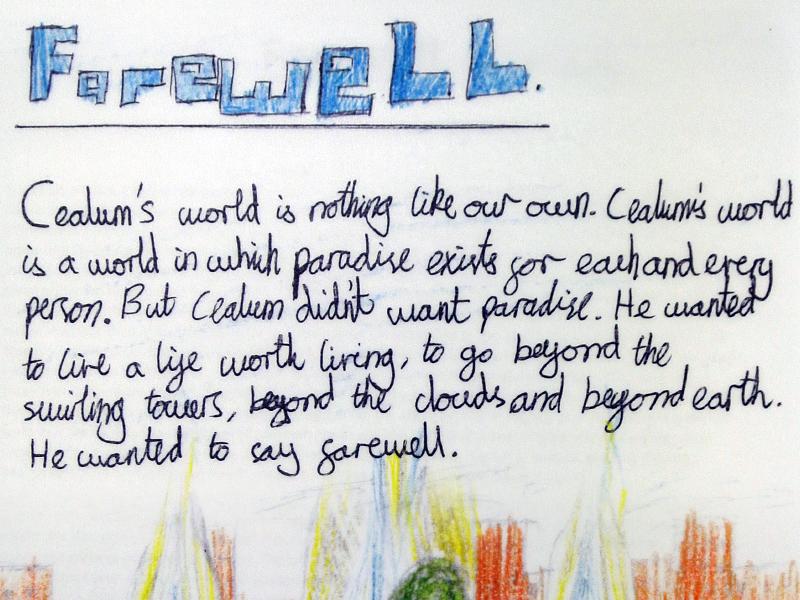 Farewell.
Cealum's world is nothing like our own. Cealum's world
is a world in which paradise exists for each and every
person. But Cealum didn't want paradise. He wanted
to live a life worth living, to go beyond the
swirling towers, beyond the clouds and beyond earth.
He wanted to say farewell.